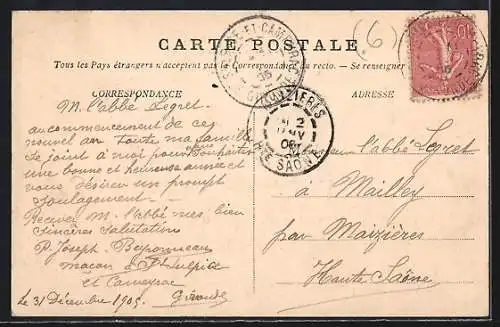 CARTE POSTALE
(6)
Tous les Pays étrangers n'acceptent pas la Correspondance au recto. — Se renseigner
CORRESPONDANCE
ADRESSE
M. l'abbé Legret
au commencement de ces
nouvel an toute ma famille
se joint à moi pour souhaiter
une bonne et heureuse année et
vous désirer un prompt
soulagement —
Recevez M. l'abbé mes bien
sincères salutation
P. Joseph
maçon à St Sulpice
et Cameyrac
le 31 Décembre 1905. Gironde
MAIZIERES
2
JANV
06
HTE SAONE
l'abbé Legret
à Mailley
par Maizières
Haute Saône